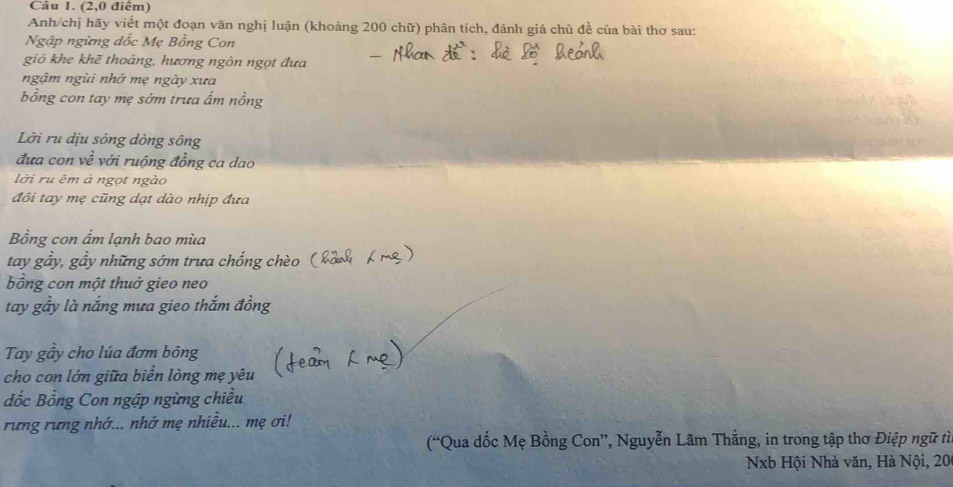 Câu 1. (2,0 điểm)
Anh/chị hãy viết một đoạn văn nghị luận (khoảng 200 chữ) phân tích, đánh giá chủ đề của bài thơ sau:
Ngập ngừng dốc Mẹ Bồng Con
gió khe khẽ thoảng, hương ngòn ngọt đưa
- Nhan đề:
ngậm ngùi nhớ mẹ ngày xưa
bồng con tay mẹ sớm trưa ẵm nồng
Lời ru dịu sóng dòng sông
đưa con về với ruộng đồng ca dao
lời ru êm ả ngọt ngào
đôi tay mẹ cũng dạt dào nhịp đưa
Bồng con ẵm lạnh bao mùa
tay gầy, gầy những sớm trưa chống chèo
bồng con một thuở gieo neo
tay gầy là nắng mưa gieo thắm đồng
Tay gầy cho lúa đơm bông
cho con lớn giữa biển lòng mẹ yêu
dốc Bồng Con ngập ngừng chiều
rưng rưng nhớ... nhớ mẹ nhiều... mẹ ơi!
(“Qua dốc Mẹ Bồng Con”, Nguyễn Lãm Thắng, in trong tập thơ Điệp ngữ tì
Nxb Hội Nhà văn, Hà Nội, 20